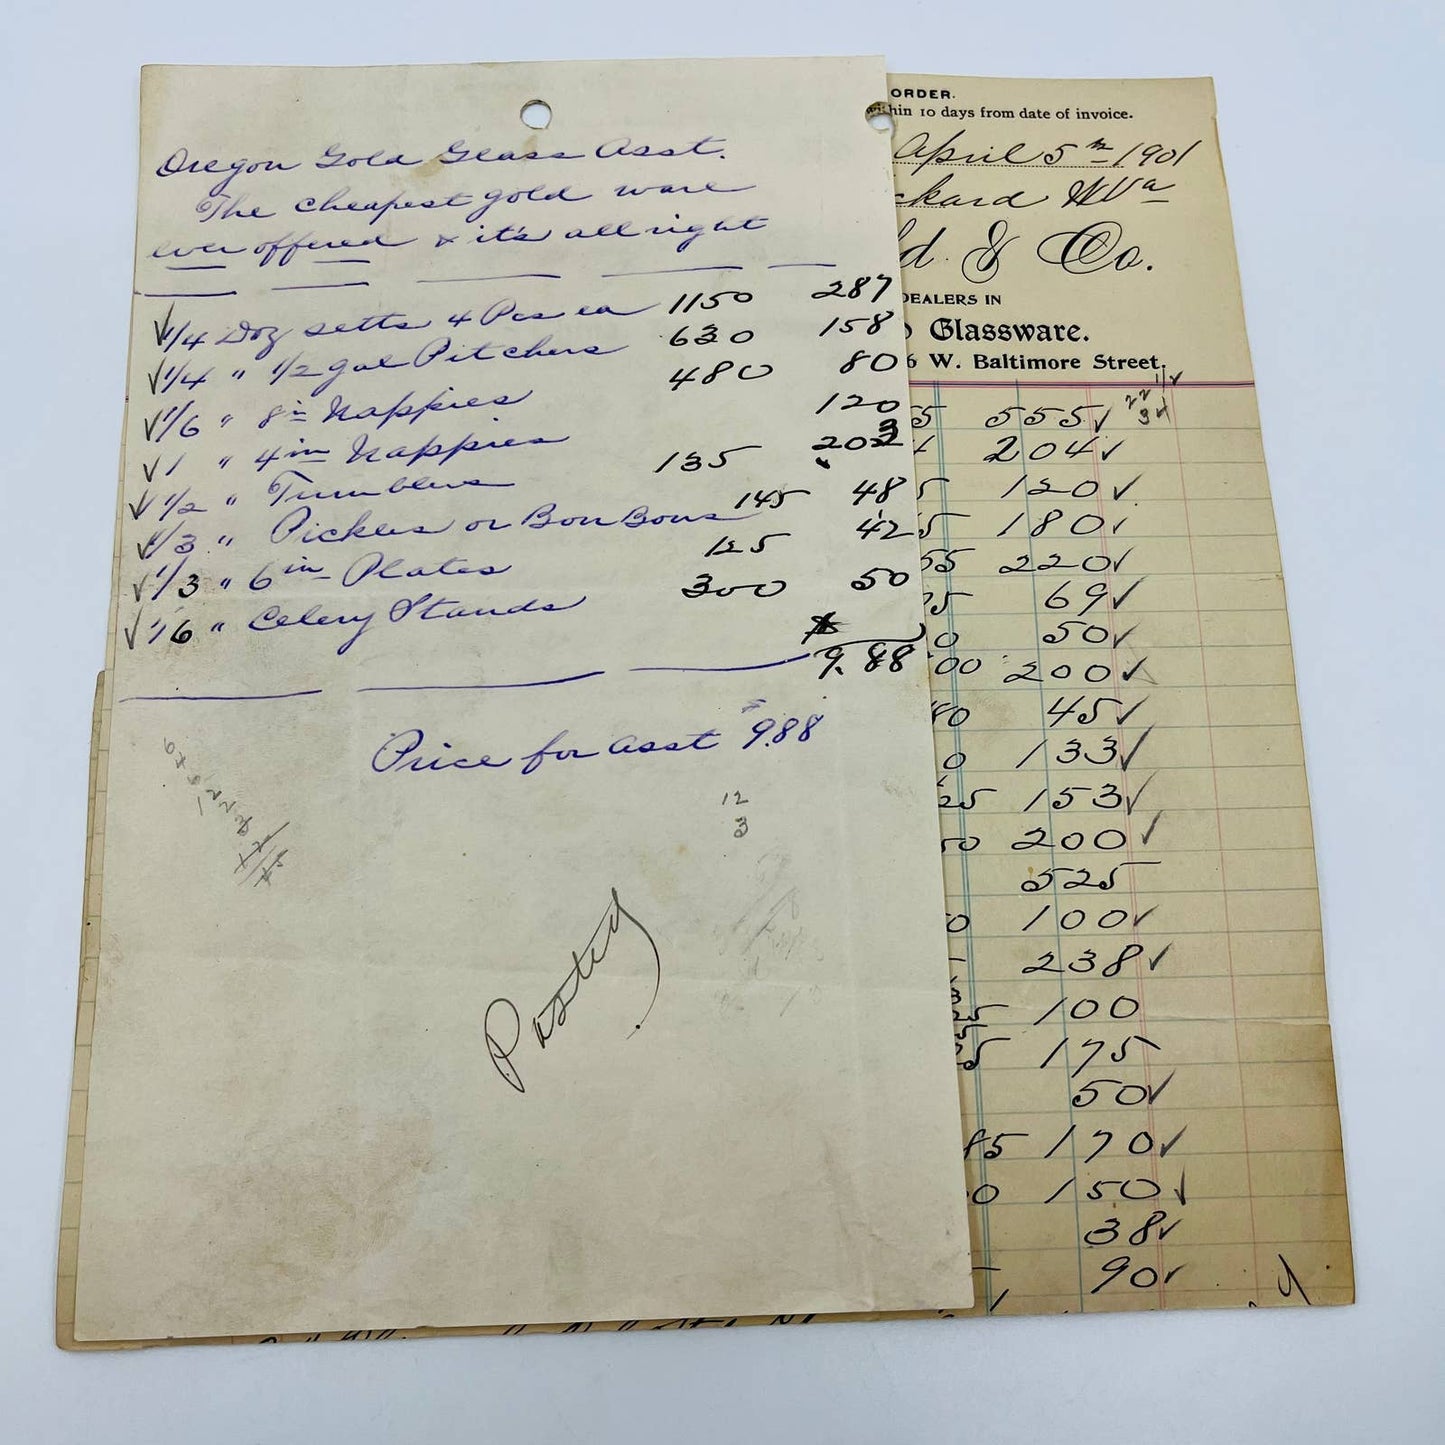 Oregon Gold Glass Asst.
The cheapest gold ware
ever offered & it's all right
√ 1/4 Doz setts 4 Pcs ea 1150 287
√ 1/4 " 1/2 gal Pitchers 630 158
√ 1/6 " 8 in Nappies 480 80
√ 1 " 4 in Nappies 120
√ 1/2 " Tumblers 135 203
√ 1/3 " Pickles or Bon Bons 145 48
√ 1/3 " 6 in Plates 125 42
√ 1/6 " Celery Stands 300 50
9.88
Price for asst $9.88
12
3
Posted
ORDER.
within 10 days from date of invoice.
April 5th 1901
ckard W Va
d. & Co.
DEALERS IN
Glassware.
6 W. Baltimore Street.
55 555 √
204 √
5 120 √
5 180 √
55 220 √
25 69 √
0 50 √
00 200 √
80 45 √
0 133 √
25 153 √
50 200 √
525
0 100 √
238 √
100
175
50 √
85 170 √
0 150 √
38 √
90 √